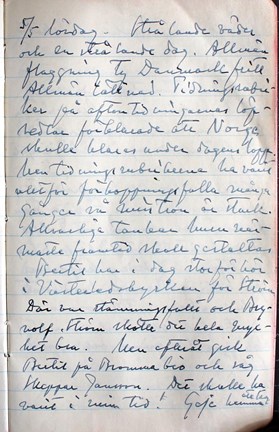 5/5 lördag. Strålande väder
och en strålande dag. Allmän
flaggning ty Danmark fritt
Allmän lättnad. Tidningsrubri-
ker på aftontidningarnas löp-
sedlar förklarade att Norge
skulle klaras under dagens lopp
Men tidningsrubrikerna ha varit
alltför förhoppningsfulla många
gånger så misstron är stark
Allvarliga tankar huru när-
maste framtid skulle gestaltas
Bertil har i dag
i Västerledskyrkan för Ström
Där var stämningsfullt och Bery-
nolf Ström skötte det hela myc-
ket bra. Men efteråt gick
Bertil på Bromma bio och såg
Skeppar Jansson. Det skulle ha
varit i min tid! Geje hemma